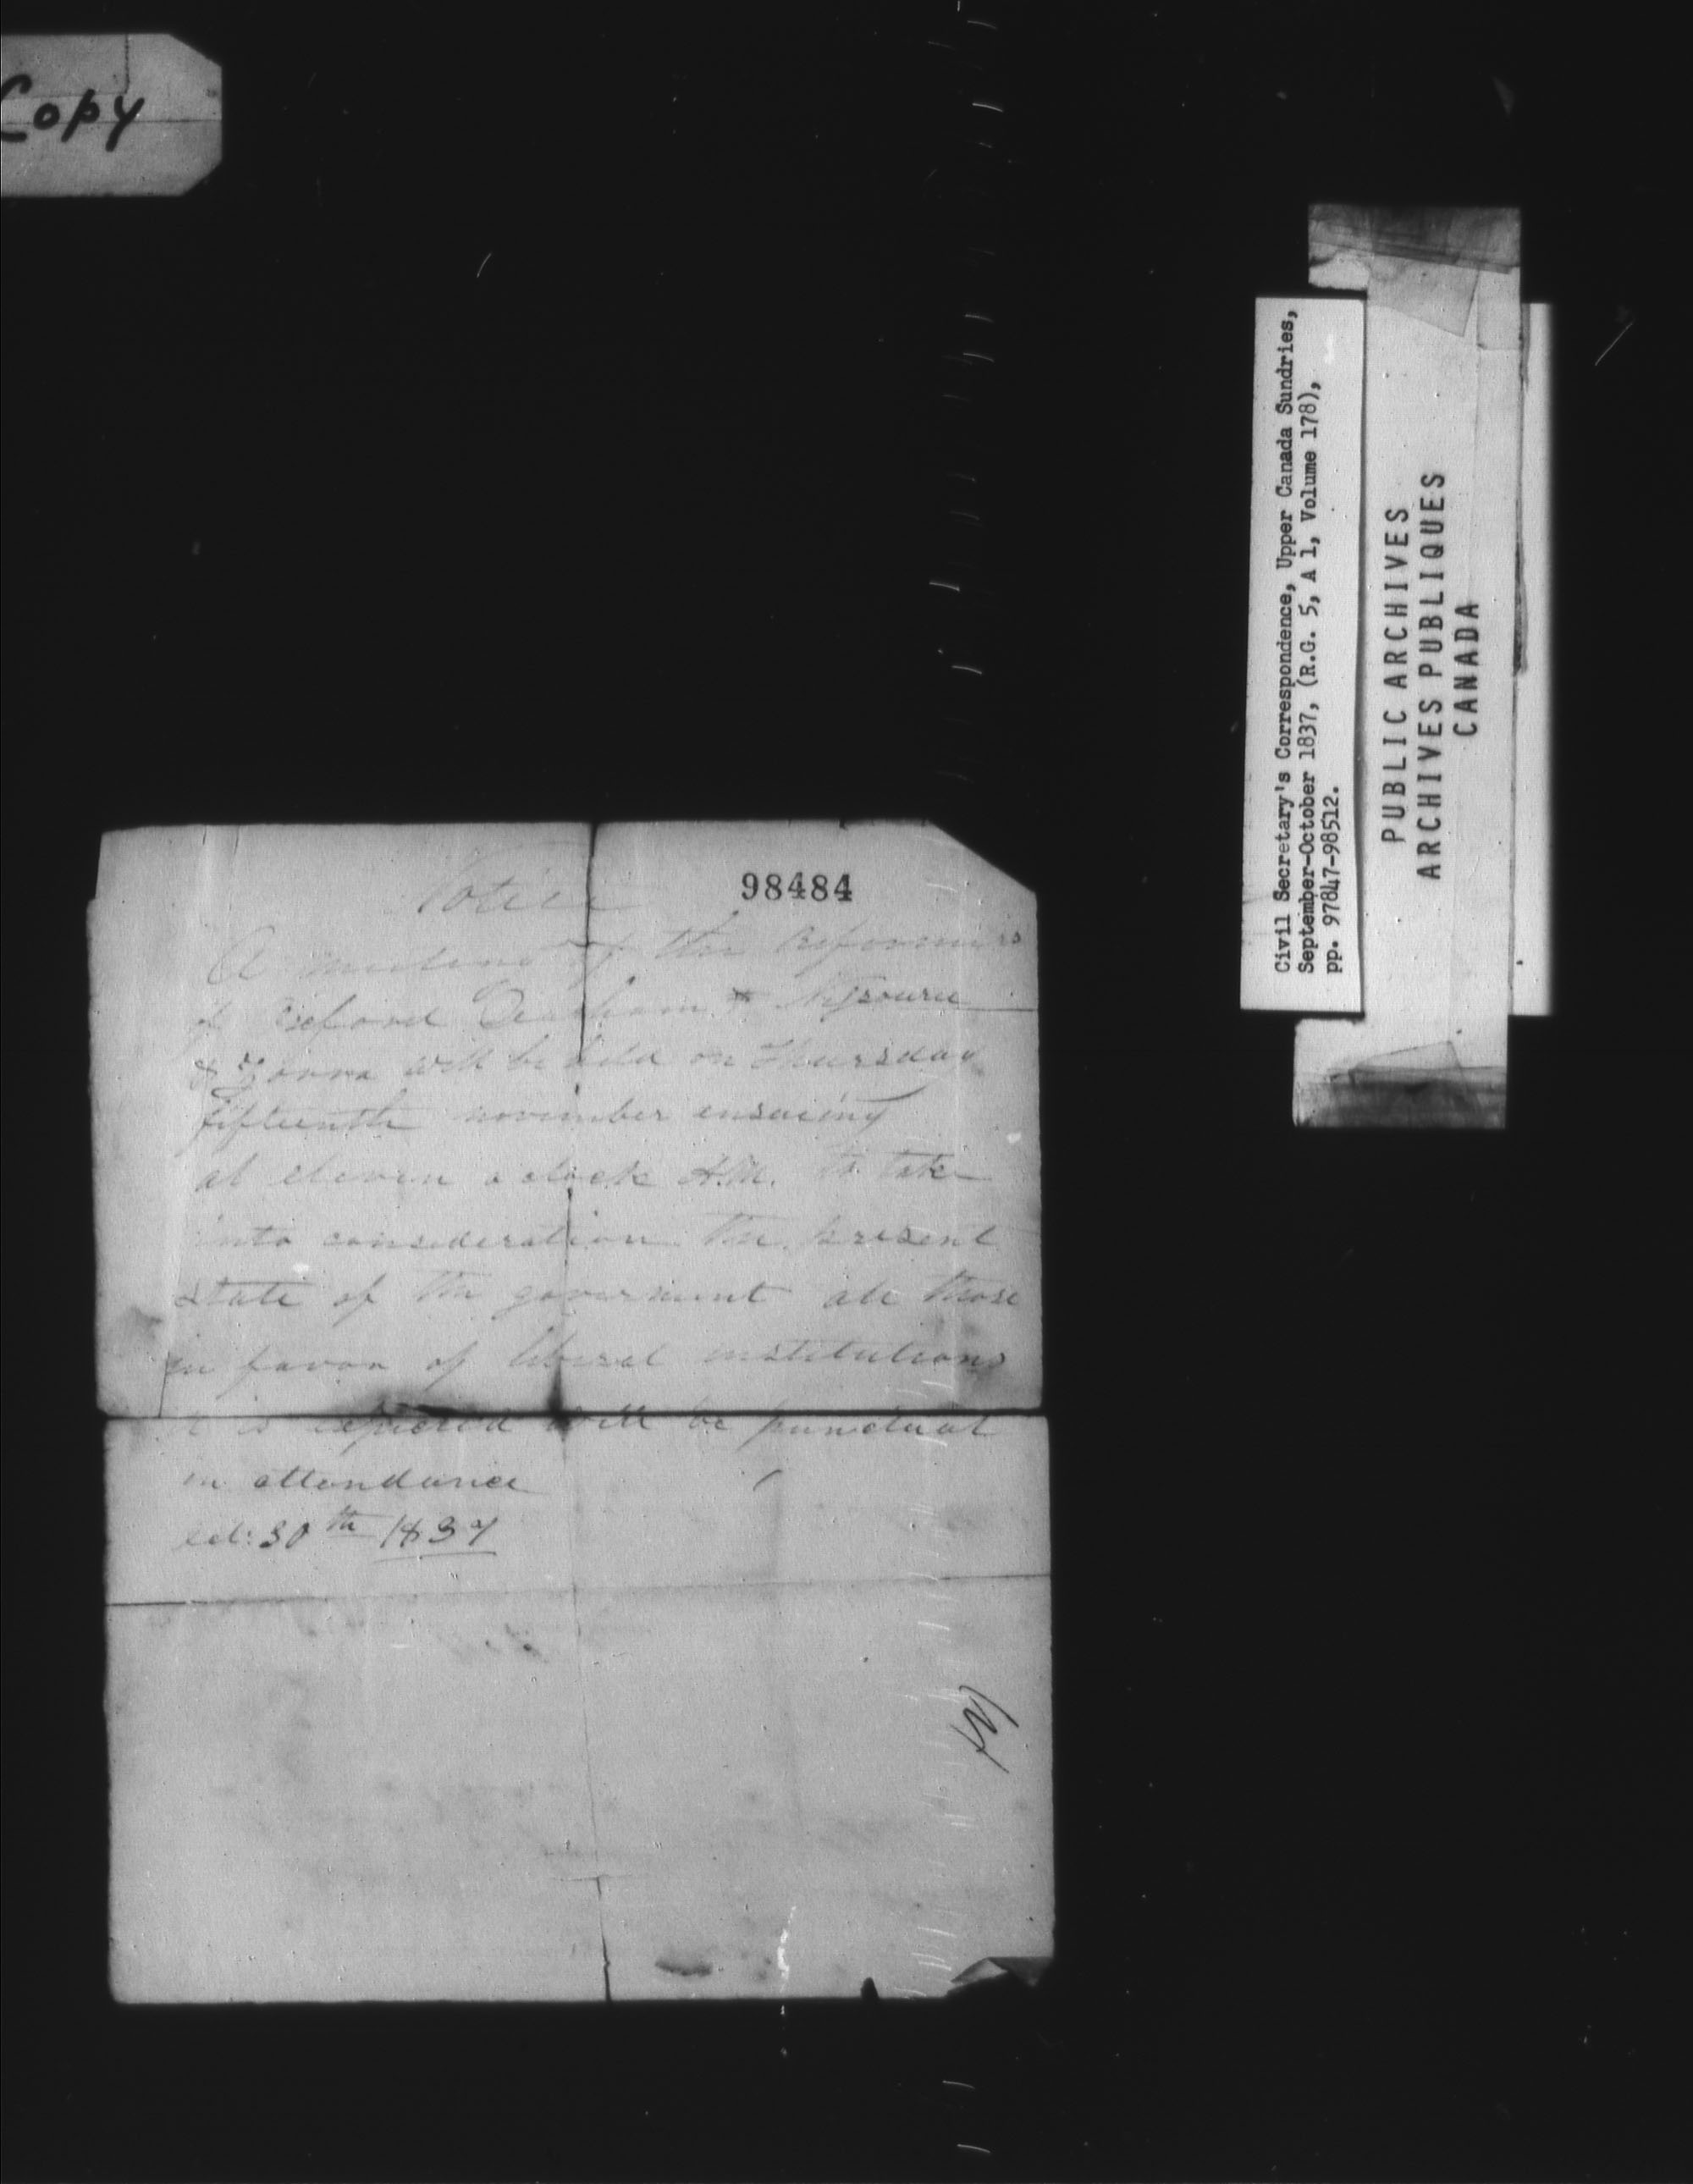 Copy
98484
Notice
A meeting of the Reformers
of Oxford Dearham & Nissouri
& Zorra will be held on Thursday
fifteenth november ensueing
at eleven o clock A.M. to take
into consideration the present
state of the goverment all those
in favor of liberal institutions
it is expected will be punctual
in attendance
Oct: 30th 1837
Civil Secretary's Correspondence, Upper Canada Sundries,
September-October 1837, (R.G. 5, A 1, Volume 178),
pp. 97847-98512.
PUBLIC ARCHIVES
ARCHIVES PUBLIQUES
CANADA